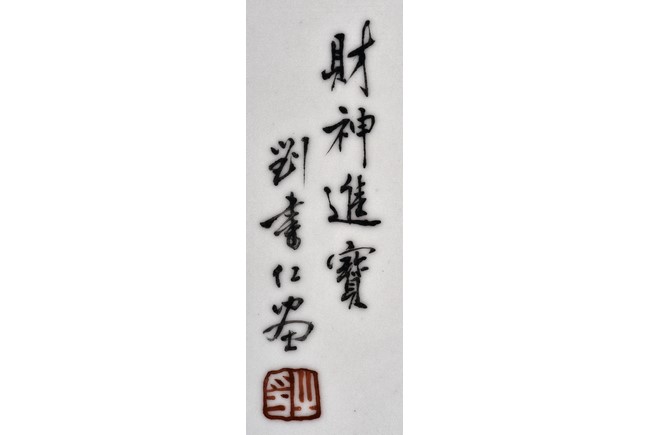 財神進寶
劉書仁